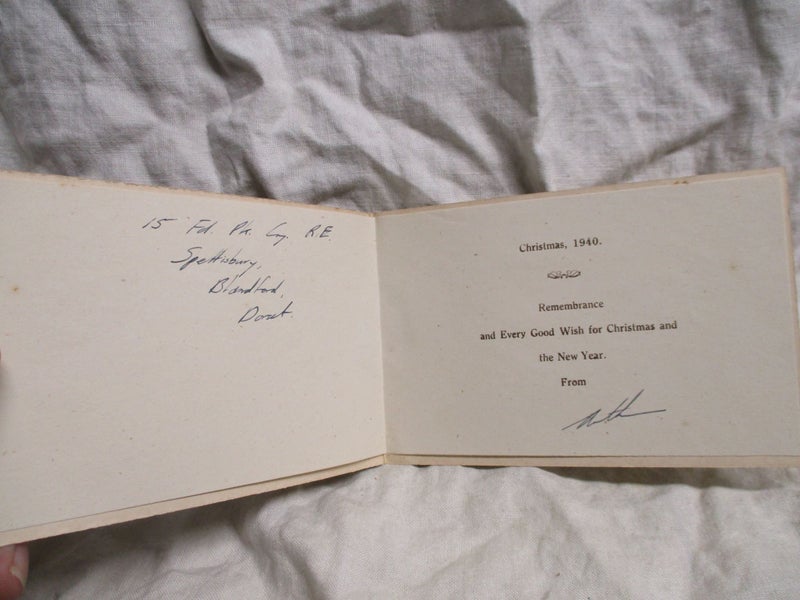 15 Fd. Pk. Coy. R.E.
Spettisbury,
Blandford,
Dorset.
Christmas, 1940.
Remembrance
and Every Good Wish for Christmas and
the New Year.
From